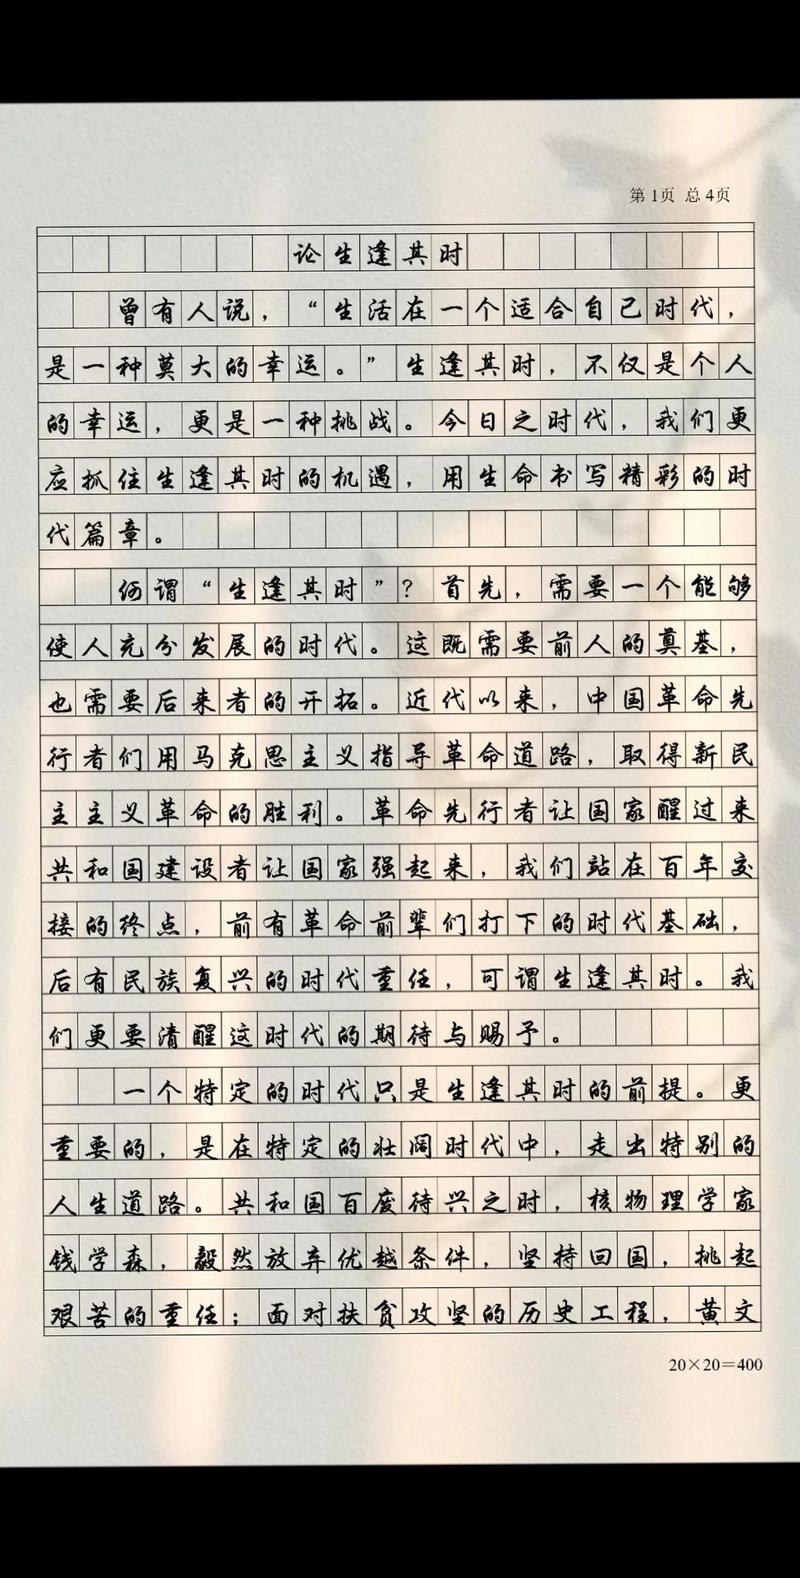 第1页 总4页
论生逢其时
曾有人说，“生活在一个适合自己时代，
是一种莫大的幸运。”生逢其时，不仅是个人
的幸运，更是一种挑战。今日之时代，我们更
应抓住生逢其时的机遇，用生命书写精彩的时
代篇章。
何谓“生逢其时”？首先，需要一个能够
使人充分发展的时代。这既需要前人的奠基，
也需要后来者的开拓。近代以来，中国革命先
行者们用马克思主义指导革命道路，取得新民
主主义革命的胜利。革命先行者让国家醒过来
共和国建设者让国家强起来，我们站在百年交
接的终点，前有革命前辈们打下的时代基础，
后有民族复兴的时代重任，可谓生逢其时。我
们更要清醒这时代的期待与赐予。
一个特定的时代只是生逢其时的前提。更
重要的，是在特定的壮阔时代中，走出特别的
人生道路。共和国百废待兴之时，核物理学家
钱学森，毅然放弃优越条件，坚持回国，挑起
艰苦的重任；面对扶贫攻坚的历史工程，黄文
20×20=400